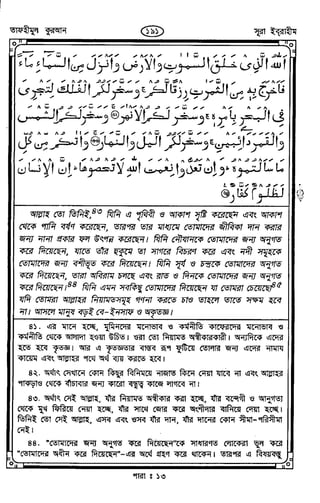 তাফহীমুল কুরআন
১৯১
সূরা ইবরাহীম
اَللهُ الَّذِىْ خَلَقَ السَّمٰوٰتِ وَالْاَرْضَ وَاَنْزَلَ مِنَ السَّمَاءِ مَاءً
فَاَخْرَجَ بِهٖ مِنَ الثَّمَرٰتِ رِزْقًا لَّكُمْ ۚ وَسَخَّرَ لَكُمُ الْفُلْكَ لِتَجْرِىَ
فِى الْبَحْرِ بِاَمْرِهٖ ۚ وَسَخَّرَ لَكُمُ الْاَنْهٰرَ ۞ وَسَخَّرَ لَكُمُ الشَّمْسَ
وَالْقَمَرَ دَائِبَيْنِ ۚ وَسَخَّرَ لَكُمُ الَّيْلَ وَالنَّهَارَ ۞ وَاٰتٰىكُمْ مِّنْ كُلِّ
مَا سَاَلْتُمُوْهُ ۚ وَاِنْ تَعُدُّوْا نِعْمَتَ اللهِ لَا تُحْصُوْهَا ۚ اِنَّ الْاِنْسَانَ
لَظَلُوْمٌ كَفَّارٌ ۞
আল্লাহ তো তিনিই,৪৩ যিনি এ পৃথিবী ও আকাশ সৃষ্টি করেছেন এবং আকাশ
থেকে পানি বর্ষণ করেছেন, তারপর তার মাধ্যমে তোমাদের জীবিকা দান করার
জন্য নানা প্রকার ফল উৎপন্ন করেছেন। যিনি নৌযানকে তোমাদের জন্য অনুগত
করে দিয়েছেন, যাতে তাঁর হুকুমে তা সাগরে বিচরণ করে এবং নদী সমূহকে
তোমাদের জন্য বশীভূত করে দিয়েছেন। যিনি সূর্য ও চন্দ্রকে তোমাদের জন্য অনুগত
করে দিয়েছেন, তারা অবিরাম চলছে এবং রাত ও দিনকে তোমাদের জন্য অনুগত
করে দিয়েছেন।৪৪ যিনি এমন সবকিছু তোমাদের দিয়েছেন যা তোমরা চেয়েছো৪৫
যদি তোমরা আল্লাহর নিয়ামতসমূহ গণনা করতে চাও তাহলে তাতে সক্ষম হবে
না। আসলে মানুষ বড়ই বে-ইনসাফ ও অকৃতজ্ঞ।
৪১. এর মানে হচ্ছে, মুমিনদের মনোভাব ও কর্মনীতি কাফেরদের মনোভাব ও
কর্মনীতি থেকে আলাদা হওয়া উচিত। ওরা তো নিয়ামত অস্বীকারকারী। অন্যদিকে এদের
হতে হবে কৃতজ্ঞ। আর এ কৃতজ্ঞতার বাস্তব রূপ ফুটিয়ে তোলার জন্য এদের নামায
কায়েম এবং আল্লাহর পথে অর্থ ব্যয় করতে হবে।
৪২. অর্থাৎ সেখানে কোন কিছুর বিনিময়ে নাজাত কিনে নেয়া যাবে না এবং আল্লাহর
পাকড়াও থেকে বাঁচাবার জন্য কারো বন্ধুত্ব কাজে লাগবে না।
৪৩. অর্থাৎ সেই আল্লাহ, যাঁর নিয়ামত অস্বীকার করা হচ্ছে, যাঁর বন্দেগী ও আনুগত্য
থেকে মুখ ফিরিয়ে নেয়া হচ্ছে, যাঁর সাথে জোর করে অংশীদার বানিয়ে দেয়া হচ্ছে।
তিনিই তো সেই আল্লাহ, এসব এবং ওসব যাঁর দান, যাঁর দানের কোন সীমা-পরিসীমা
নেই।
৪৪. "তোমাদের জন্য অনুগত করে দিয়েছেন"কে সাধারণত লোকেরা ভুল করে
"তোমাদের অধীন করে দিয়েছেন"-এর অর্থে গ্রহণ করে থাকেন। তারপর এ বিষয়বস্তু
পারা : ১৩